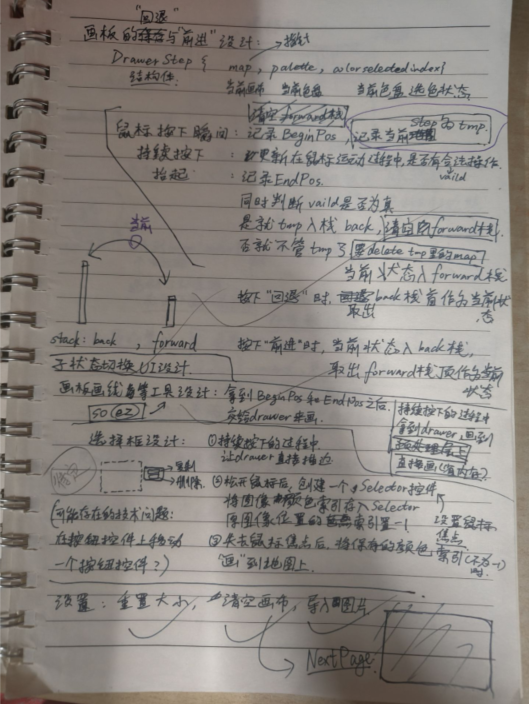 "回退"
画板的与"前进"设计: →指针
DrawerStep { map, palette, colorselectedindex}
结构体. 当前画布 当前色盘 当前色盘选色状态
清空forward栈
鼠标按下瞬间: 记录BeginPos, 记录当前step为tmp.
持续按下: 更新在鼠标运动过程中,是否有合法操作. vaild
抬起: 记录EndPos.
同时判断vaild是否为真
当前 是就tmp入栈back, 清空forward栈.
否就不管tmp了 要delete tmp里的map
当前状态入forward栈
按下"回退"时, 取出back栈首作为当前状态
stack: back , forward 按下"前进"时, 当前状态入back栈,
取出forward栈顶作为当前状态
子状态切换UI设计
画板画线等工具设计: 拿到BeginPos和EndPos之后,
so(ez) 交给drawer来画.
持续按下的过程中
拿到drawer,画到
预处理层上
直接画(省内存).
选择框设计: ①持续按下的过程中
让drawer直接描边
复制
删除
②松开鼠标后, 创建一个Selector控件
将图像颜色索引存入Selector
原图像位置的索引置-1
设置鼠标
焦点
(可能存在的技术问题:
在按钮控件上移动
一个按钮控件?)
③失去鼠标焦点后, 将保存的颜色索引(不为-1)时
"画"到地图上.
设置: 重置大小, 清空画布, 导入图片
NextPage.